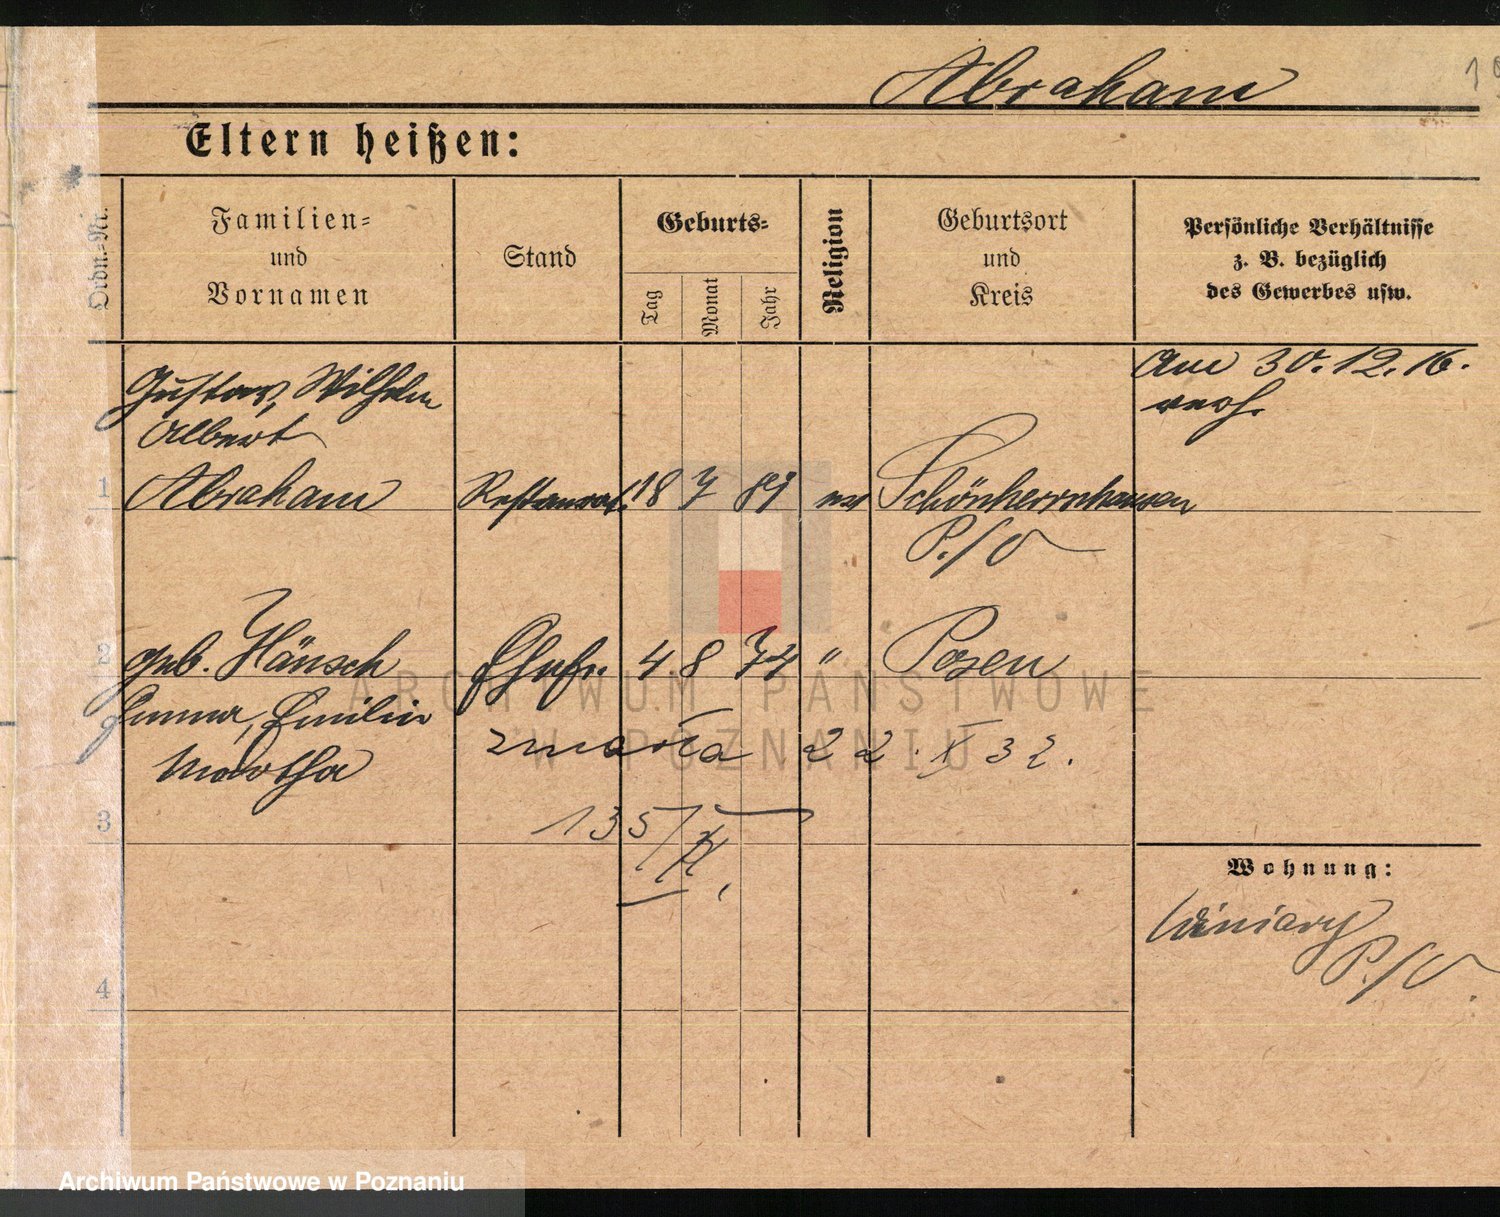 Abraham
Eltern heißen:
Ordn.-Nr.
Familien-
und
Vornamen
Stand
Geburts-
Tag
Monat
Jahr
Religion
Geburtsort
und
Kreis
Persönliche Verhältnisse
z. B. bezüglich
des Gewerbes usw.
Am 30.12.16.
verh.
Gustav, Wilhelm
Albert
1 Abraham Restaurat. 18 7 81 ev Schönherrnhausen
P./O
2 geb. Hänsch Ehefr. 4 8 74 " Posen
Emma, Emilie
Martha
zmarła 22. X 32.
3
135/XI
Wohnung:
Winiary
P./O.
4
ARCHIWUM PAŃSTWOWE
W POZNANIU
Archiwum Państwowe w Poznaniu